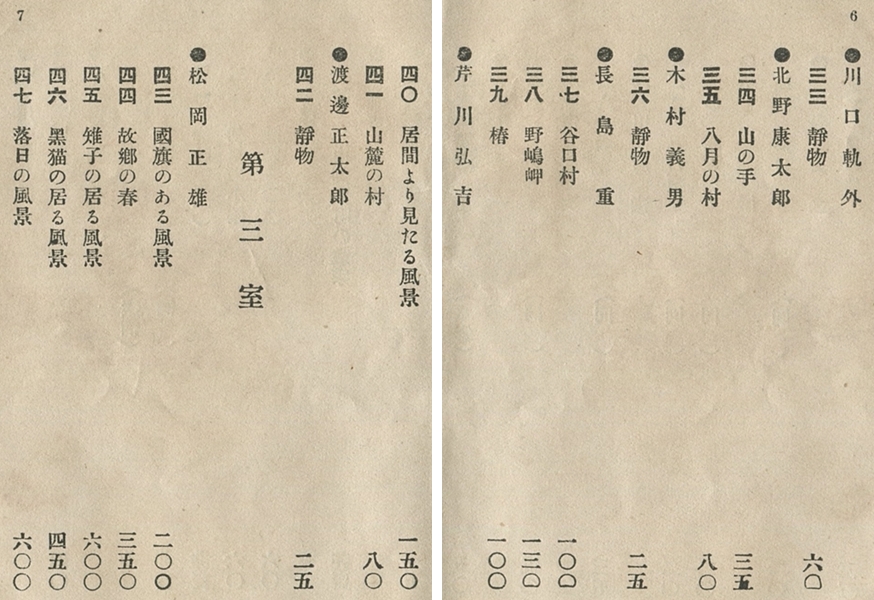 6
●川口軌外
三三 靜物 六〇
●北野康太郎
三四 山の手 三五
三五 八月の村 八〇
●木村義男
三六 靜物 二五
●長島重
三七 谷口村 一〇〇
三八 野嶋岬 一三〇
三九 椿 一〇〇
●芹川弘吉
7
四〇 居間より見たる風景 一五〇
四一 山麓の村 八〇
●渡邊正太郎
四二 靜物 二五
第三室
●松岡正雄
四三 國旗のある風景 二〇〇
四四 故鄉の春 三五〇
四五 雉子の居る風景 六〇〇
四六 黑猫の居る風景 四五〇
四七 落日の風景 六〇〇